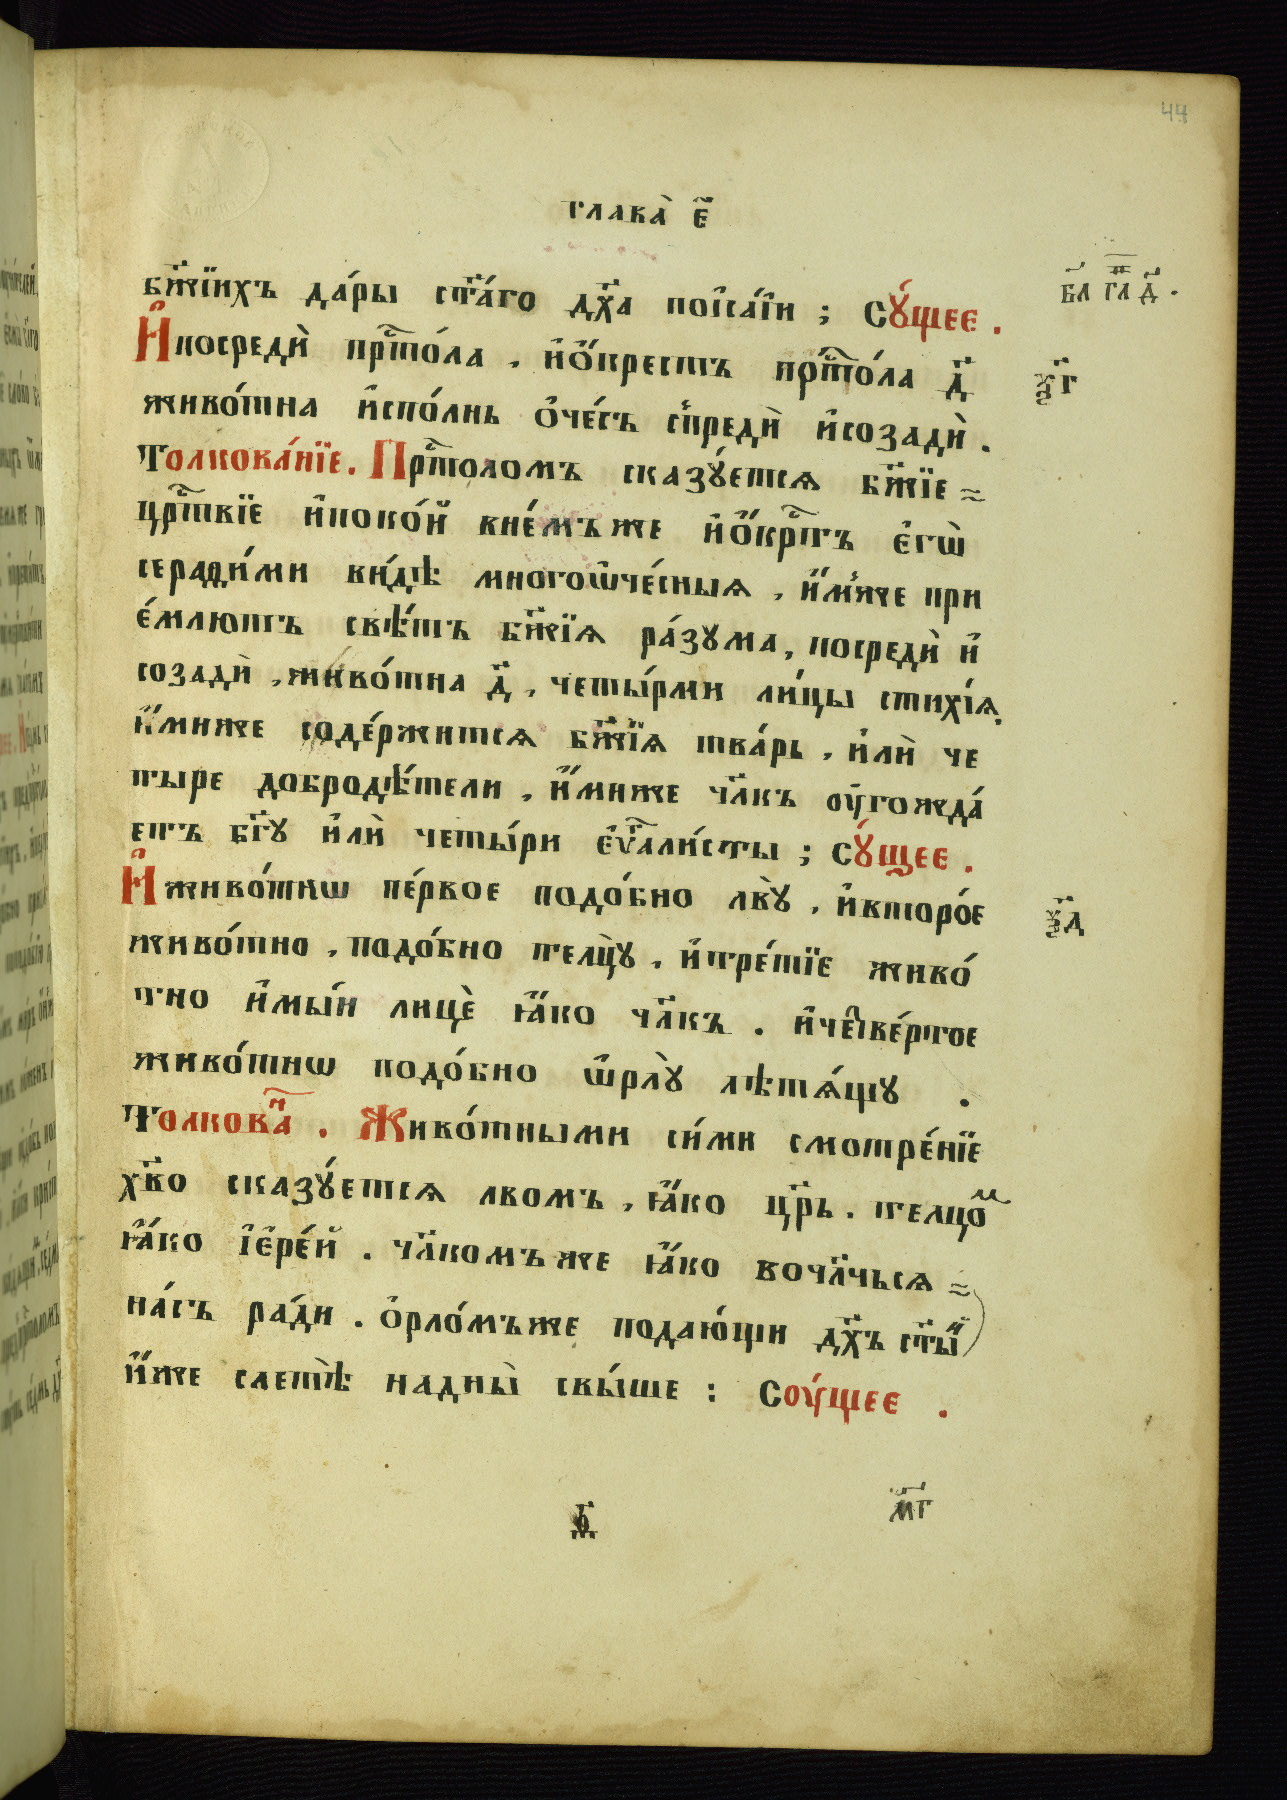 44
глава̀ є҃
бж҃їихъ да́ры ст҃а́го дх҃а поїса́їи ; Сꙋ́щее .
бл гл д҃ .
И҆посредѝ прⷭ҇то́ла . и҆ѻ҆́крестъ прⷭ҇то́ла д҃
ѯ҃г
живо́тна и҆спо́лнь ѻ҆че́съ спредѝ и҆созадѝ .
Толкова́нїе . Прⷭ҇толомъ сказꙋ́ется бж҃їе
црⷭ҇твїе и҆поко́й вне́мъже и҆ѻ҆́крⷭ҇тъ є҆гѡ̀
серафи́ми ви́дѣ многоѡ҆че́сныѧ , и҆́мꙗже при
е́млютъ свѣ́тъ бж҃їѧ ра́зума , посредѝ и҆
созадѝ , живо́тна д҃ , четы́рми ли́цы стихі́ѧ ,
и҆́миже соде́ржитсѧ бж҃їѧ тва́рь , и҆лѝ че
тыре добродѣ́тели , и҆́миже чл҃къ ѹ҆гожда́
етъ бг҃ꙋ и҆лѝ четы́ри є҆ѵⷢ҇али́сты ; Сꙋ́щее .
И҆живо́тнѡ пе́рвое подо́бно лвꙋ̀ , и҆второ́е
ѯ҃д
живо́тно , подо́бно телцꙋ̀ , и҆тре́тїе живо́
тно и҆мы́и лицѐ ꙗ҆́ко чл҃къ . и҆четве́ртое
живо́тнѡ подо́бно ѡ҆рлꙋ̀ лѣтѧ́щꙋ .
Толкова́нⷩ҇ . Живо́тными си́ми смотре́нїе
хв҃о сказꙋ́етсѧ лвомъ , ꙗ҆́ко цр҃ь . телцоⷨ
ꙗ҆́ко і҆ере́й . чл҃комъже ꙗ҆́ко вочл҃чьсѧ
на́съ ра́ди . ѻ҆рло́мъже подаю́щи дх҃ъ ст҃ы́й
и҆́же слетѣ̀ надны̀ свы́ше : Соу́щее .
мг҃